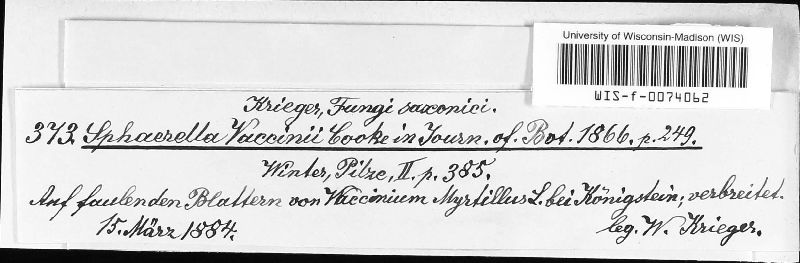 University of Wisconsin-Madison (WIS)
WIS-f-0074062
Krieger, Fungi saxonici.
373. Sphaerella Vaccinii Cooke in Journ. of. Bot. 1866. p. 249.
Winter, Pilze, II. p. 385.
Auf faulenden Blättern von Vaccinium Myrtillus L. bei Königstein; verbreitet.
15. März 1884.
leg. W. Krieger.